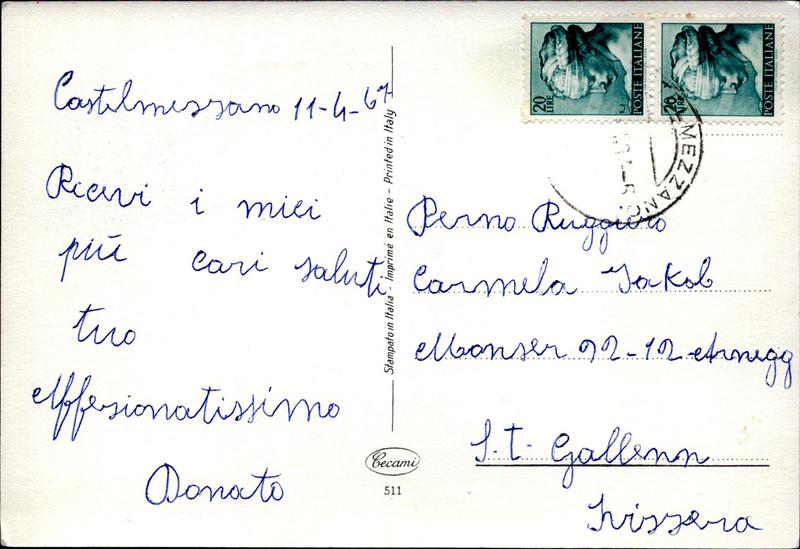 Castelmezzano 11-4-67
Ricevi i miei
più cari saluti
tuo
Affesionatissimo
Donato
Stampato in Italia - Imprimé en Italie - Printed in Italy
Cecami
511
20 LIRE
POSTE ITALIANE
20 LIRE
POSTE ITALIANE
MEZZANO
Perno Ruggiero
Carmela Jakob
Monser 92-12 Arnegg
S.t. Gallenn
Svissera